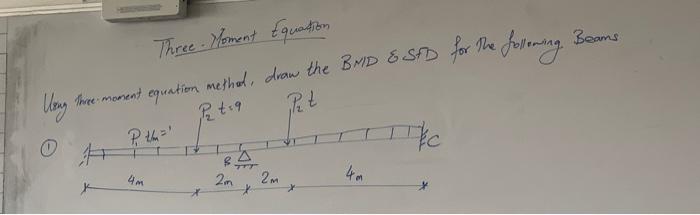 Three-Moment Equation
Using three-moment equation method, draw the BMD & SFD for the following Beams
P₂ t=9 P₂ t
① P₁ t/m=1
B C
4m 2m 2m 4m